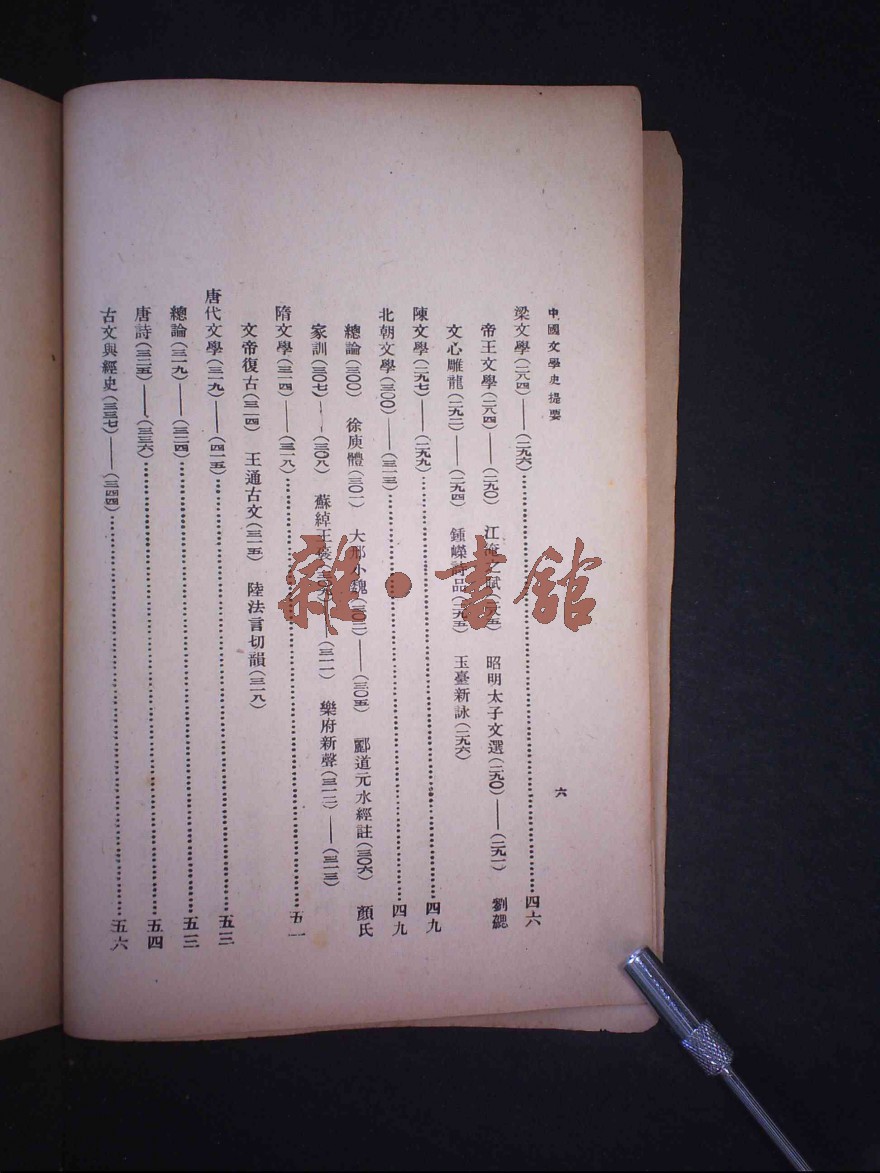 中國文學史提要
六
梁文學(二八四)——(二九六)……四六
帝王文學(二八四)——(二九〇) 江淹之賦(二八五) 昭明太子文選(二九〇)——(二九一) 劉勰
文心雕龍(二九二)——(二九四) 鍾嶸詩品(二九五) 玉臺新詠(二九六)
陳文學(二九七)——(二九九)……四九
北朝文學(三〇〇)——(三一三)……四九
總論(三〇〇) 徐庾體(三〇一) 大邢小魏(三〇二)——(三〇五) 酈道元水經註(三〇六) 顏氏
家訓(三〇七)——(三〇八) 蘇綽王褒(三〇九)——(三一一) 樂府新聲(三一二)——(三一三)
隋文學(三一四)——(三一八)……五一
文帝復古(三一四) 王通古文(三一五) 陸法言切韻(三一八)
唐代文學(三一九)——(四一五)……五三
總論(三一九)——(三二四)……五三
唐詩(三二五)——(三三六)……五四
古文與經史(三三七)——(三四四)……五六
雜·書館